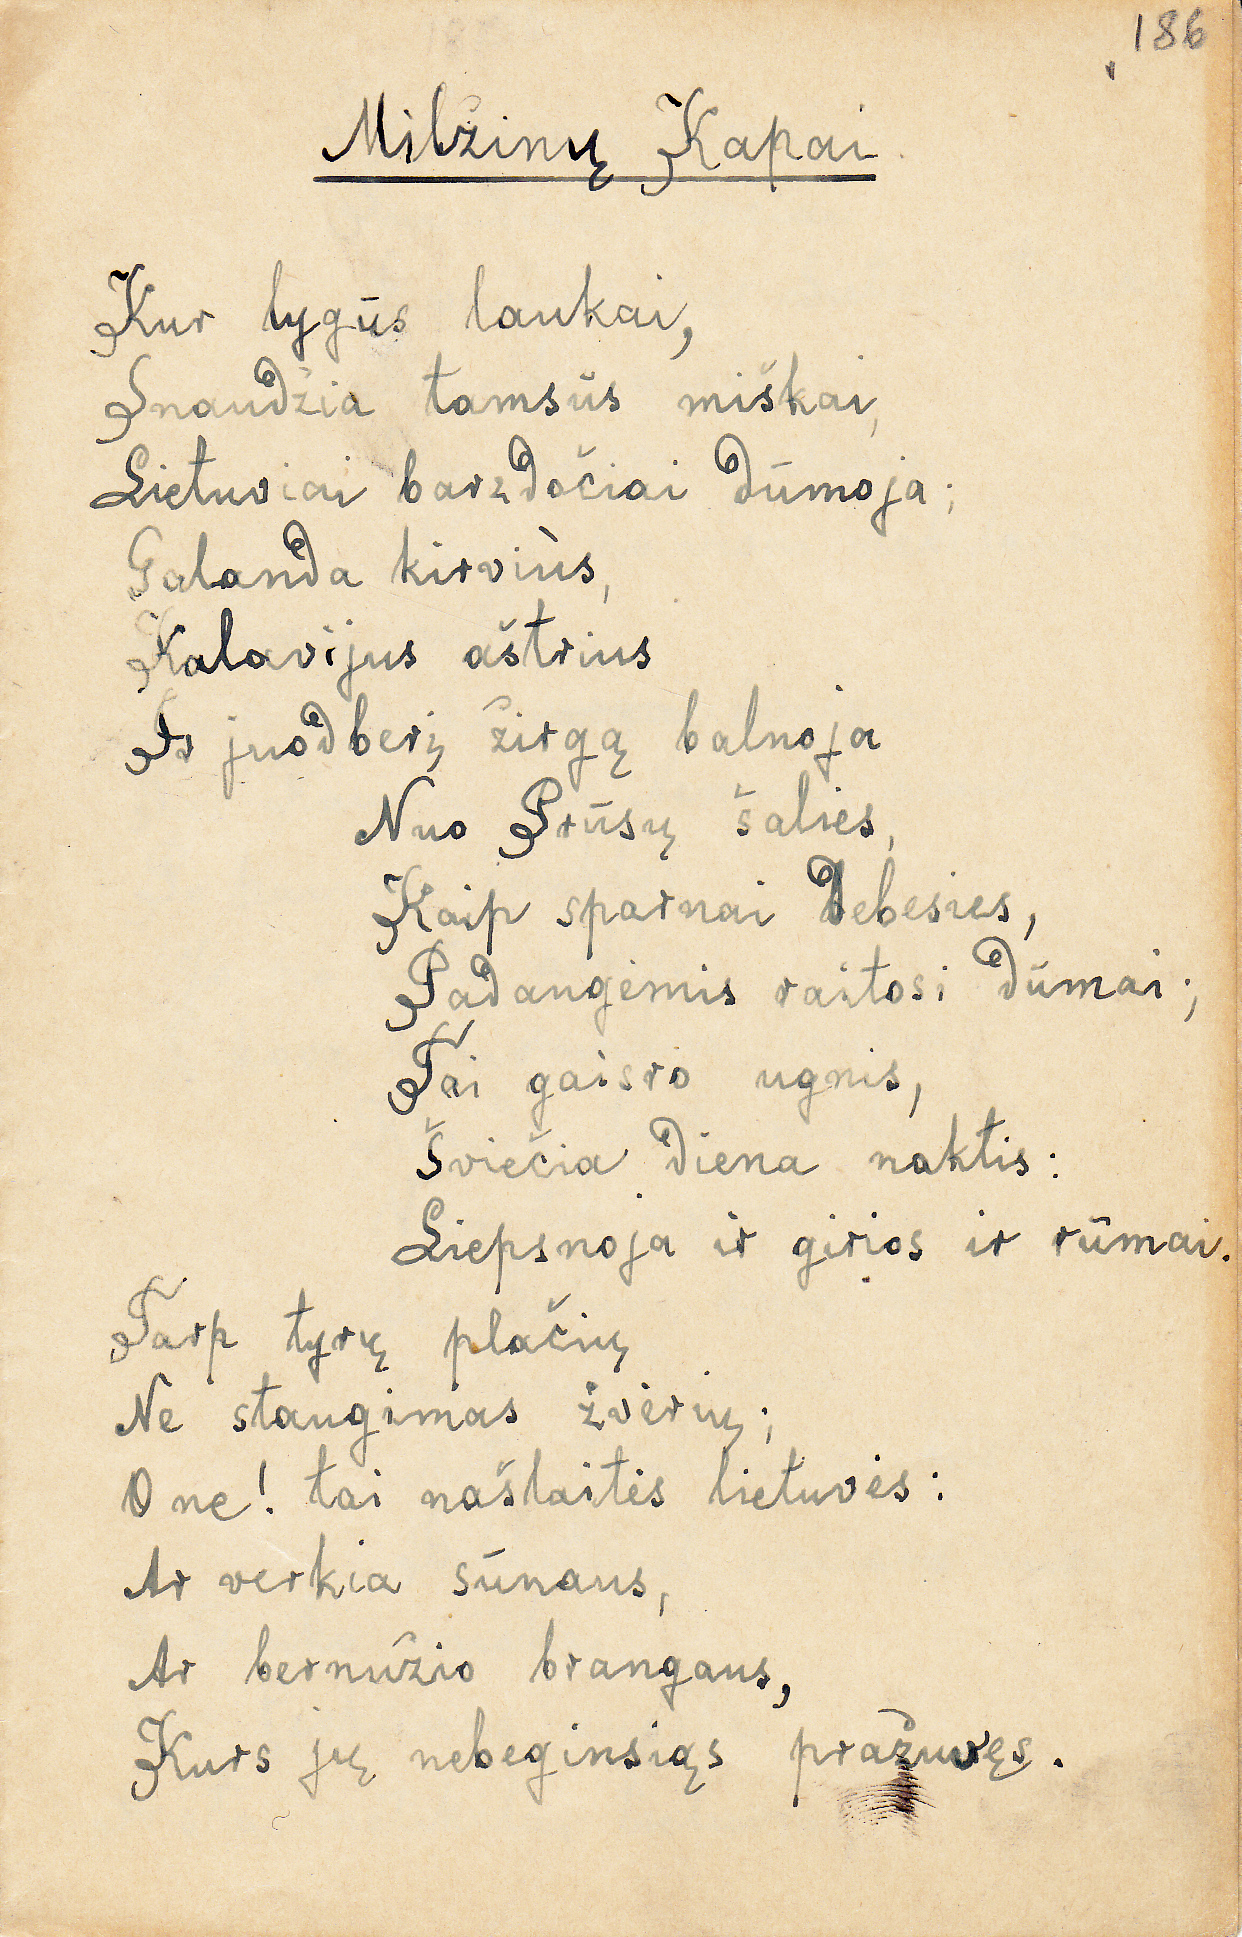 186
Milžinų Kapai
Kur lygūs laukai,
Snaudžia tamsūs miškai,
Lietuviai barzdočiai dūmoja;
Galanda kirviùs,
Kalavijus aštrius
Ir juodberį žirgą balnoja
Nuo Prūsų šalies,
Kaip sparnai debesies,
Padangėmis raitosi dūmai;
Tai gaisro ugnis,
Šviečia diena naktis:
Liepsnoja ir girios ir rūmai.
Tarp tyrų plačių
Ne staugimas žvėrių;
O ne! tai našlaitės lietuvės:
Ar verkia sūnaus,
Ar bernužio brangaus,
Kurs jų nebeginsiąs pražuvęs.